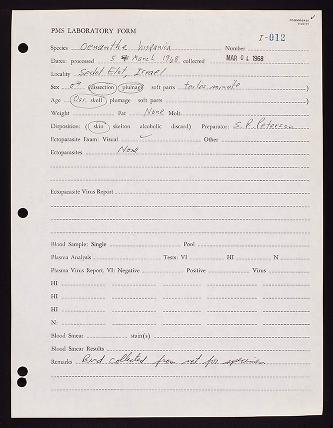 PMS LABORATORY FORM
I-012
Species Oenanthe hispanica Number
Dates: processed 5 March 1968 collected MAR 04 1968
Locality Sede Elot, Israel
Sex ♂ (dissection plumage soft parts testes minute )
Age (Oss. skull plumage soft parts )
Weight Fat None Molt
Disposition: (skin skeleton alcoholic discard) Preparator: S.R. Peterson
Ectoparasite Exam: Visual ✓ Other
Ectoparasites None
Ectoparasite Virus Report
Blood Sample: Single Pool
Plasma Analysis Tests: VI HI N
Plasma Virus Report, VI: Negative Positive Virus
HI
HI
HI
N:
Blood Smear stain(s)
Blood Smear Results
Remarks Bird collected from net for specimen